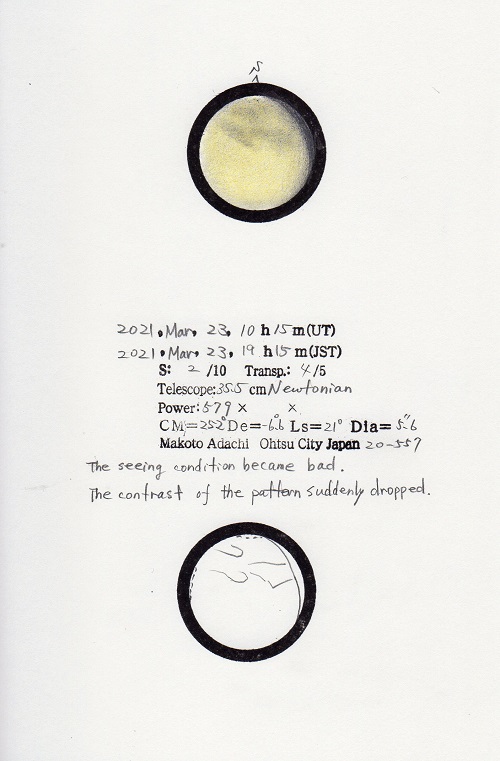 S
2021, Mar, 23, 10 h 15 m (UT)
2021, Mar, 23, 19 h 15 m (JST)
S: 2 /10 Transp.: 4/5
Telescope: 35.5 cm Newtonian
Power: 579 × ×
CM=252° De=-6.6 Ls=21° Dia=5.6"
Makoto Adachi Ohtsu City Japan 20-557
The seeing condition became bad.
The contrast of the pattern suddenly dropped.